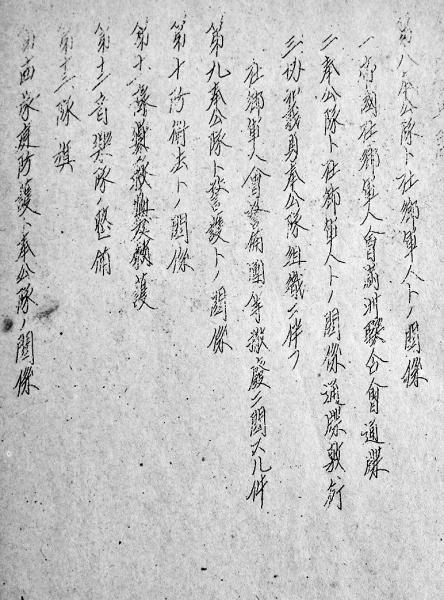 第八、奉公隊ト在鄉軍人トノ關係
一、帝國在鄉軍人會滿洲聯合會通牒
二、奉公隊ト在鄉軍人トノ關係通牒敷衍
三、協和義勇奉公隊組織ニ伴フ
在鄉軍人會警備團等撤廢ニ關スル件
第九 奉公隊ト警護トノ關係
第十 防衛法トノ關係
第十
第十二 音樂隊ノ整備
第十三 隊旗
第 家庭防護ト奉公隊ノ關係